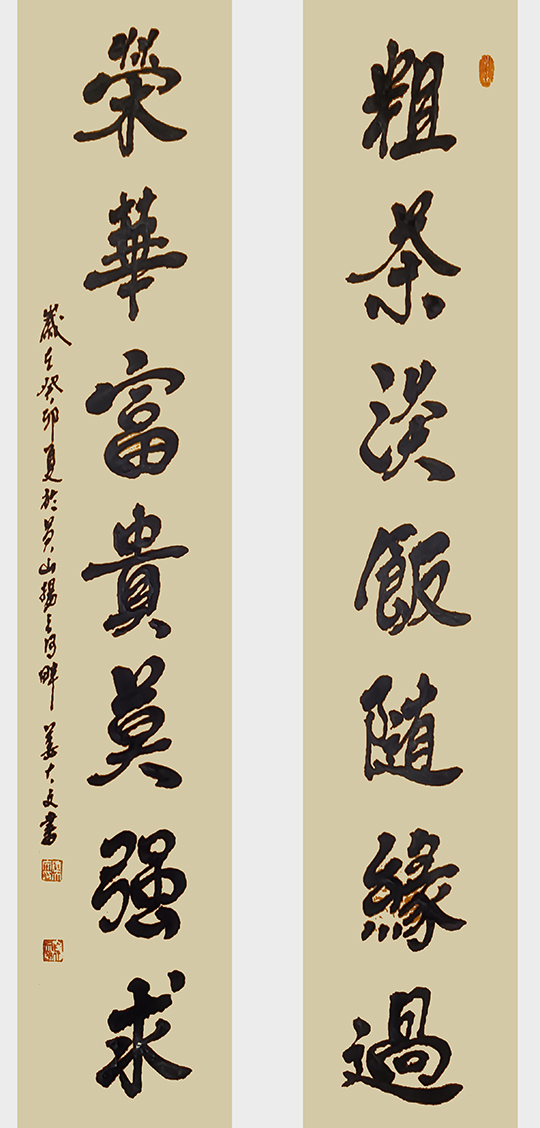 粗茶淡飯隨緣過
榮華富貴莫强求
歲在癸卯夏於吳山楊之河畔 姜大文書